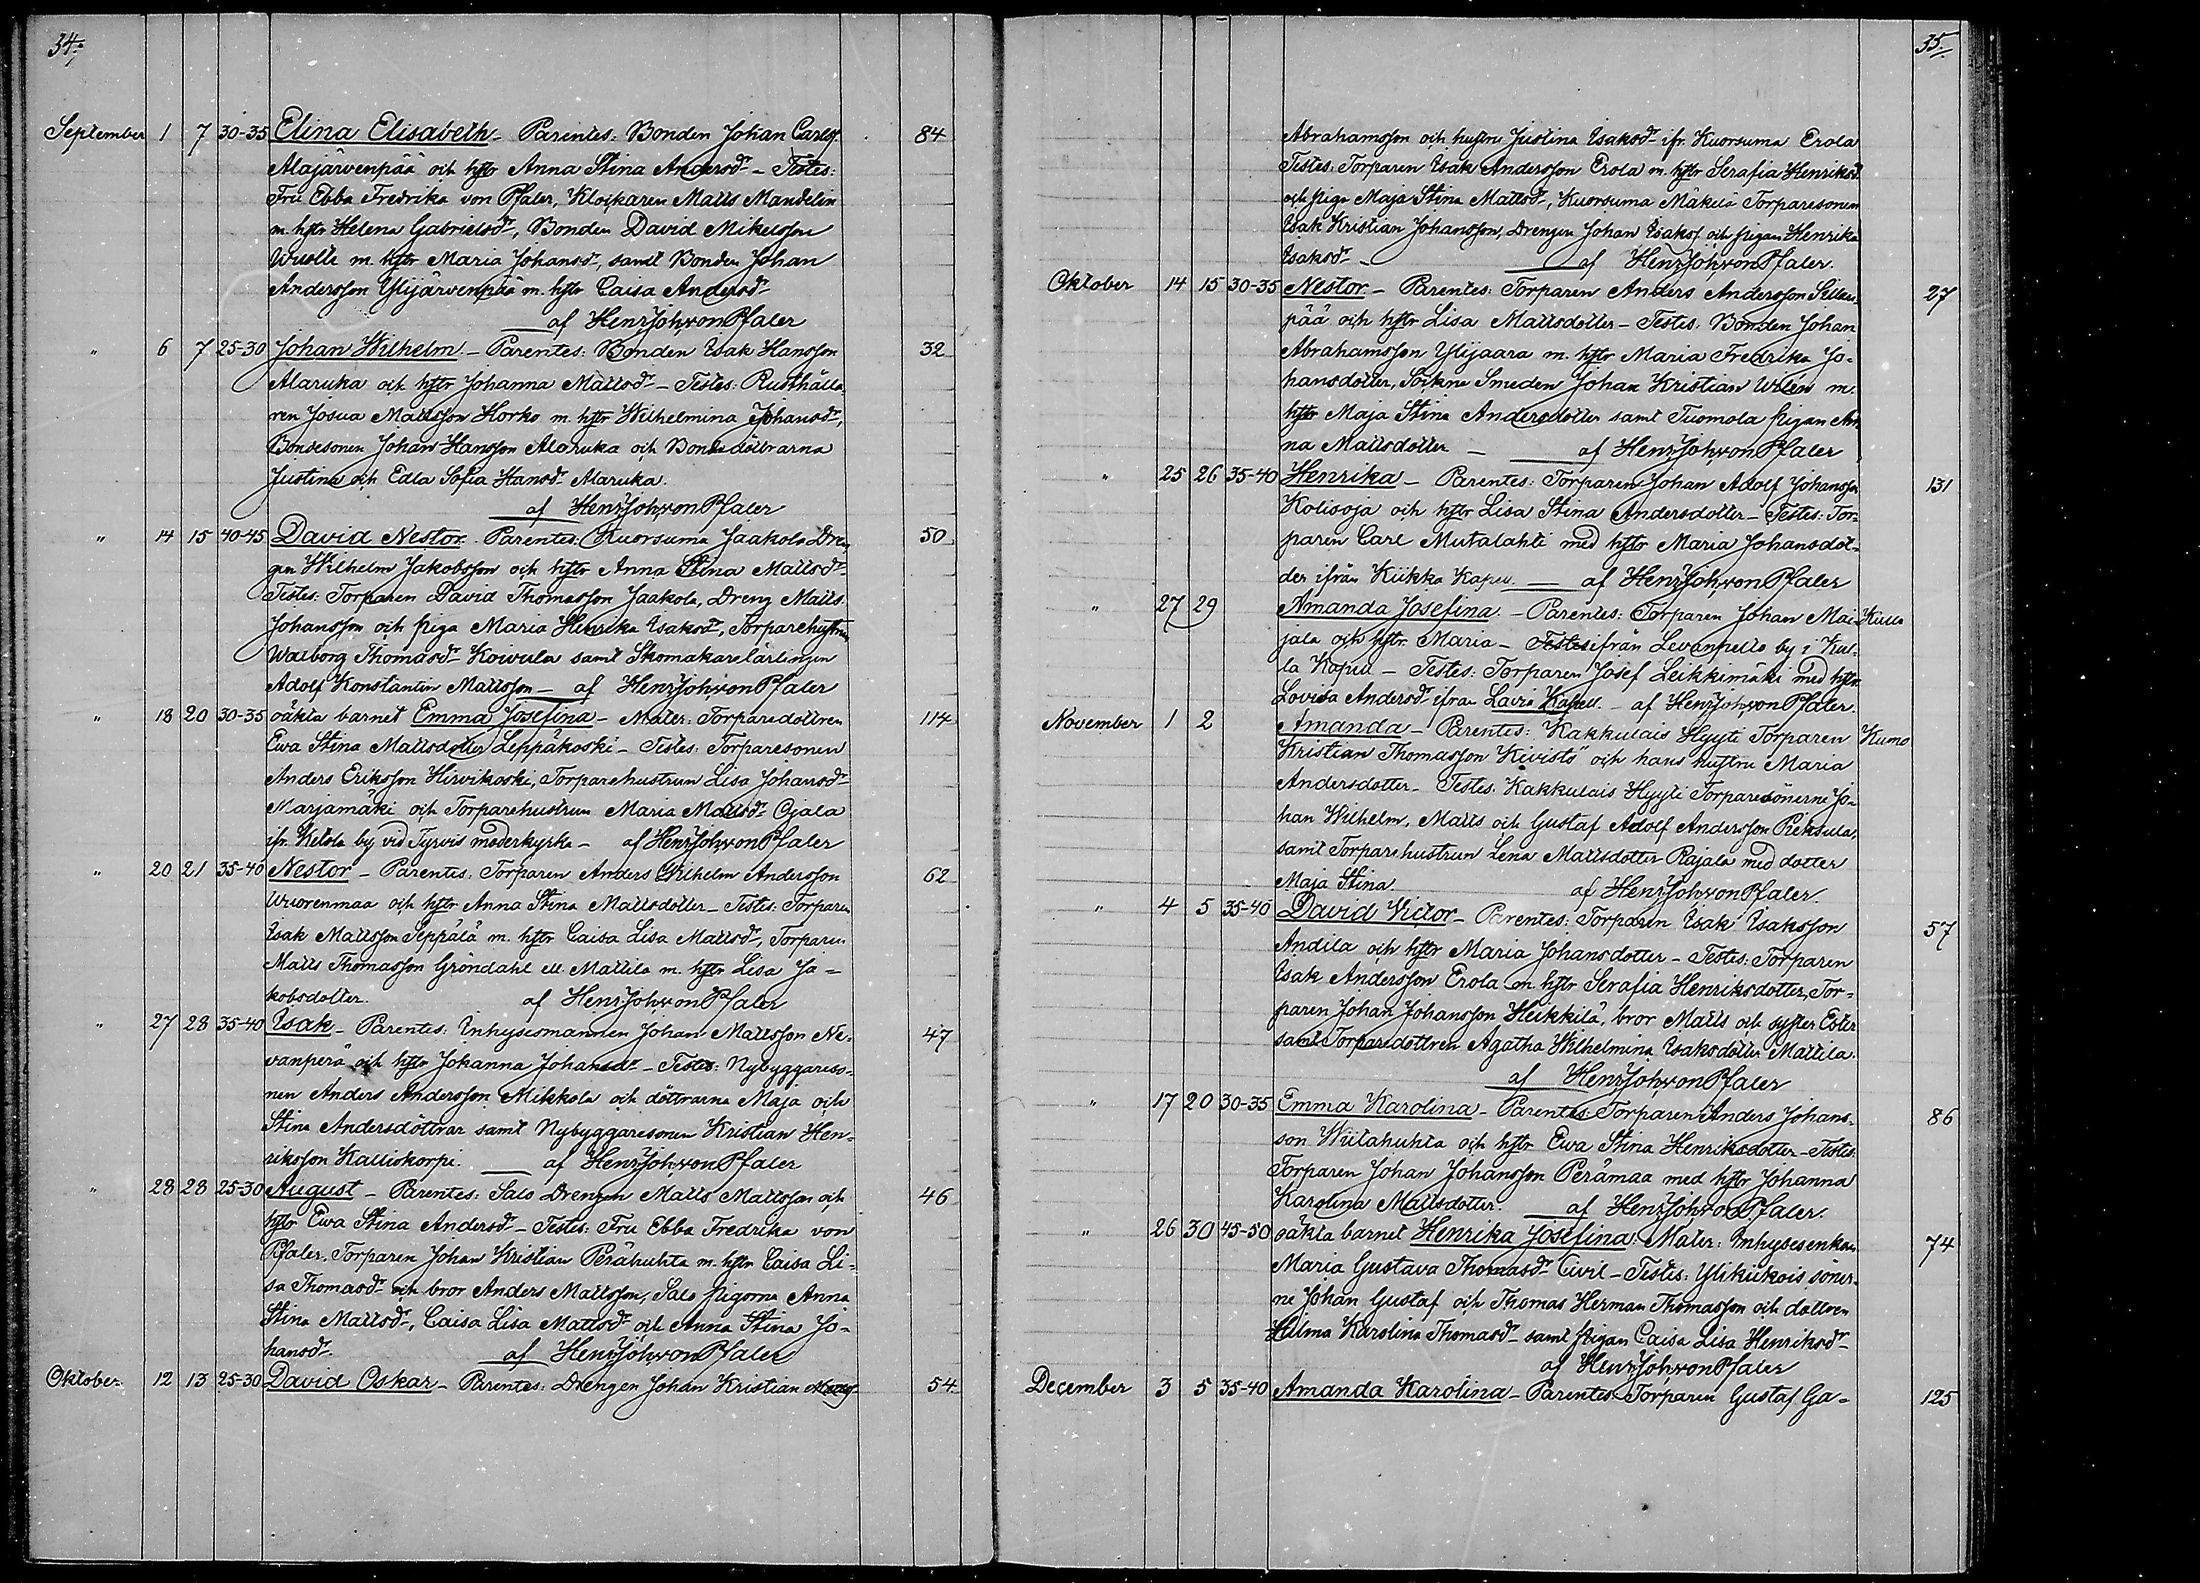 34.
September 1 7 30-35 Elina Elisabeth - Parentes: Bonden Johan Carls. 84
Alajärvenpää och hstr Anna Stina Andersdr - Testes:
Fru Ebba Fredrika von Pfaler, Klockaren Matts Mandelin
m. hstr Helena Gabrielsdr, Bonden David Mikelsson
Wuolle m. hstr Maria Johansdr, samt Bonden Johan
Andersson Ylijärvenpää m. hstr Caisa Andersdr
af Henr Joh von Pfaler
" 6 7 25-30 Johan Wilhelm - Parentes: Bonden Isak Hansson 32
Alaruka och hstr Johanna Mattsdr - Testes: Rusthålla
ren Josua Mattsson Horko m. hstr Wilhelmina Johansdr,
Bondesonen Johan Hansson Alaruka och Bondedöttrarna
Justina och Edla Sofia Hansdr Alaruka.
af Henr Joh von Pfaler
" 14 15 40-45 David Nestor. Parentes: Kuorsuma Jaakola Dren 50
gen Wilhelm Jakobsson och hstr Anna Stina Mattsdr
Testes: Torparen David Thomasson Jaakola, Dreng Matts
Johansson och piga Maria Henrika Isaksdr, Torparehustrun
Walborg Thomasdr Koivula samt Skomakarelärlingen
Adolf Konstantin Mattsson - af Henr Joh von Pfaler
" 18 20 30-35 oäkta barnet Emma Josefina - Mater: Torparedottren 114
Ewa Stina Mattsdotter Leppäkoski - Testes: Torparesonen
Anders Eriksson Hirvikoski, Torparehustrun Lisa Johansdr
Marjamäki och Torparehustrun Maria Mattsdr Ojala
ifr. Ketola by vid Tyrvis moderkyrka - af Henr Joh von Pfaler
" 20 21 35-40 Nestor - Parentes: Torparen Anders Wilhelm Andersson 62
Wuorenmaa och hstr Anna Stina Mattsdotter - Testes: Torparen
Isak Mattsson Seppälä m. hstr Caisa Lisa Mattsdr, Torparen
Matts Thomasson Gröndahl ell Mattila m. hstr Lisa Ja=
kobsdotter. af Henr Joh von Pfaler
" 27 28 35-40 Isak - Parentes: Inhysesmannen Johan Mattsson Ne= 47
vanperä och hstr Johanna Johansdr - Testes: Nybyggareso=
nen Anders Andersson Mikkola och döttrarna Maja och
Stina Andersdöttrar samt Nybyggaresonen Kristian Hen=
riksson Kalliokorpi. af Henr Joh von Pfaler
" 28 28 25-30 August - Parentes: Salo Drengen Matts Mattsson och 46
hstr Ewa Stina Andersdr - Testes: Fru Ebba Fredrika von
Pfaler, Torparen Johan Kristian Perähuhta m. hstr Caisa Li=
sa Thomasdr och bror Anders Mattsson, Salo pigorna Anna
Stina Mattsdr, Caisa Lisa Mattsdr och Anna Stina Jo=
hansdr. af Henr Joh von Pfaler
Oktober 12 13 25-30 David Oskar - Parentes: Drengen Johan Kristian 54
35.
Abrahamsson och hustru Justina Isaksdr ifr. Kuorsuma Erola
Testes: Torparen Isak Andersson Erola m. hstr Serafia Henriksdr
och piga Maja Stina Mattsdr, Kuorsuma Mäkilä Torparesonen
Isak Kristian Johansson, Drengen Johan Isakss. och pigan Henrika
Isaksdr - af Henr Joh von Pfaler.
Oktober 14 15 30-35 Nestor - Parentes: Torparen Anders Andersson Sillan 27
pää och hstr Lisa Mattsdotter - Testes: Bonden Johan
Abrahamsson Ylijaara m. hstr Maria Fredrika Jo=
hansdotter, Sockne Smeden Johan Kristian Welin m.
hstr Maja Stina Andersdotter samt Tuomola pigan An
na Mattsdotter - af Henr Joh von Pfaler
" 25 26 35-40 Henrika - Parentes: Torparen Johan Adolf Johansson 131
Kolisoja och hstr Lisa Stina Andersdotter - Testes: Tor=
paren Carl Mutalahti med hstr Maria Johansdot=
der ifrån Kiikka Kapell. - af Henr Joh von Pfaler
" 27 29 Amanda Josefina. - Parentes: Torparen Johan Mai= Kulla
jala och hstr Maria - Testes ifrån Levanpelto by i Kul=
la Kapell - Testes: Torparen Josef Leikkimäki med hstr
Lovisa Andersdr ifrån Lavia Kapell. - af Henr Joh von Pfaler.
November 1 2 Amanda - Parentes: Kakkulais Hyyti Torparen Kumo
Kristian Thomasson Kivistö och hans hustru Maria
Andersdotter - Testes: Kakkulais Hyyti Torparesönerne Jo=
han Wilhelm, Matts och Gustaf Adolf Andersson Pieksula,
samt Torparehustrun Lena Mattsdotter Rajala med dotter
Maja Stina af Henr Joh von Pfaler.
" 4 5 35-40 David Victor - Parentes: Torparen Isak Isaksson 57
Andila och hstr Maria Johansdotter - Testes: Torparen
Isak Andersson Erola m. hstr Serafia Henriksdotter, Tor=
paren Johan Johansson Heikkilä, bror Matts och syster Ester
samt Torparedottren Agatha Wilhelmina Isaksdotter Mattila.
af Henr Joh von Pfaler
" 17 20 30-35 Emma Karolina - Parentes: Torparen Anders Johans= 86
son Wiitahuhta och hstr Ewa Stina Henriksdotter - Testes:
Torparen Johan Johansson Perämaa med hstr Johanna
Karolina Mattsdotter. af Henr Joh von Pfaler.
" 26 30 45-50 oäkta barnet Henrika Josefina: Mater: Inhysesenkan 74
Maria Gustava Thomasdr Civil - Testes: Ylikiikois söner=
ne Johan Gustaf och Thomas Herman Thomasson och dottren
Hilma Karolina Thomasdr - samt pigan Caisa Lisa Henriksdr -
af Henr Joh von Pfaler
December 3 5 35-40 Amanda Karolina - Parentes: Torparen Gustaf Ga= 125